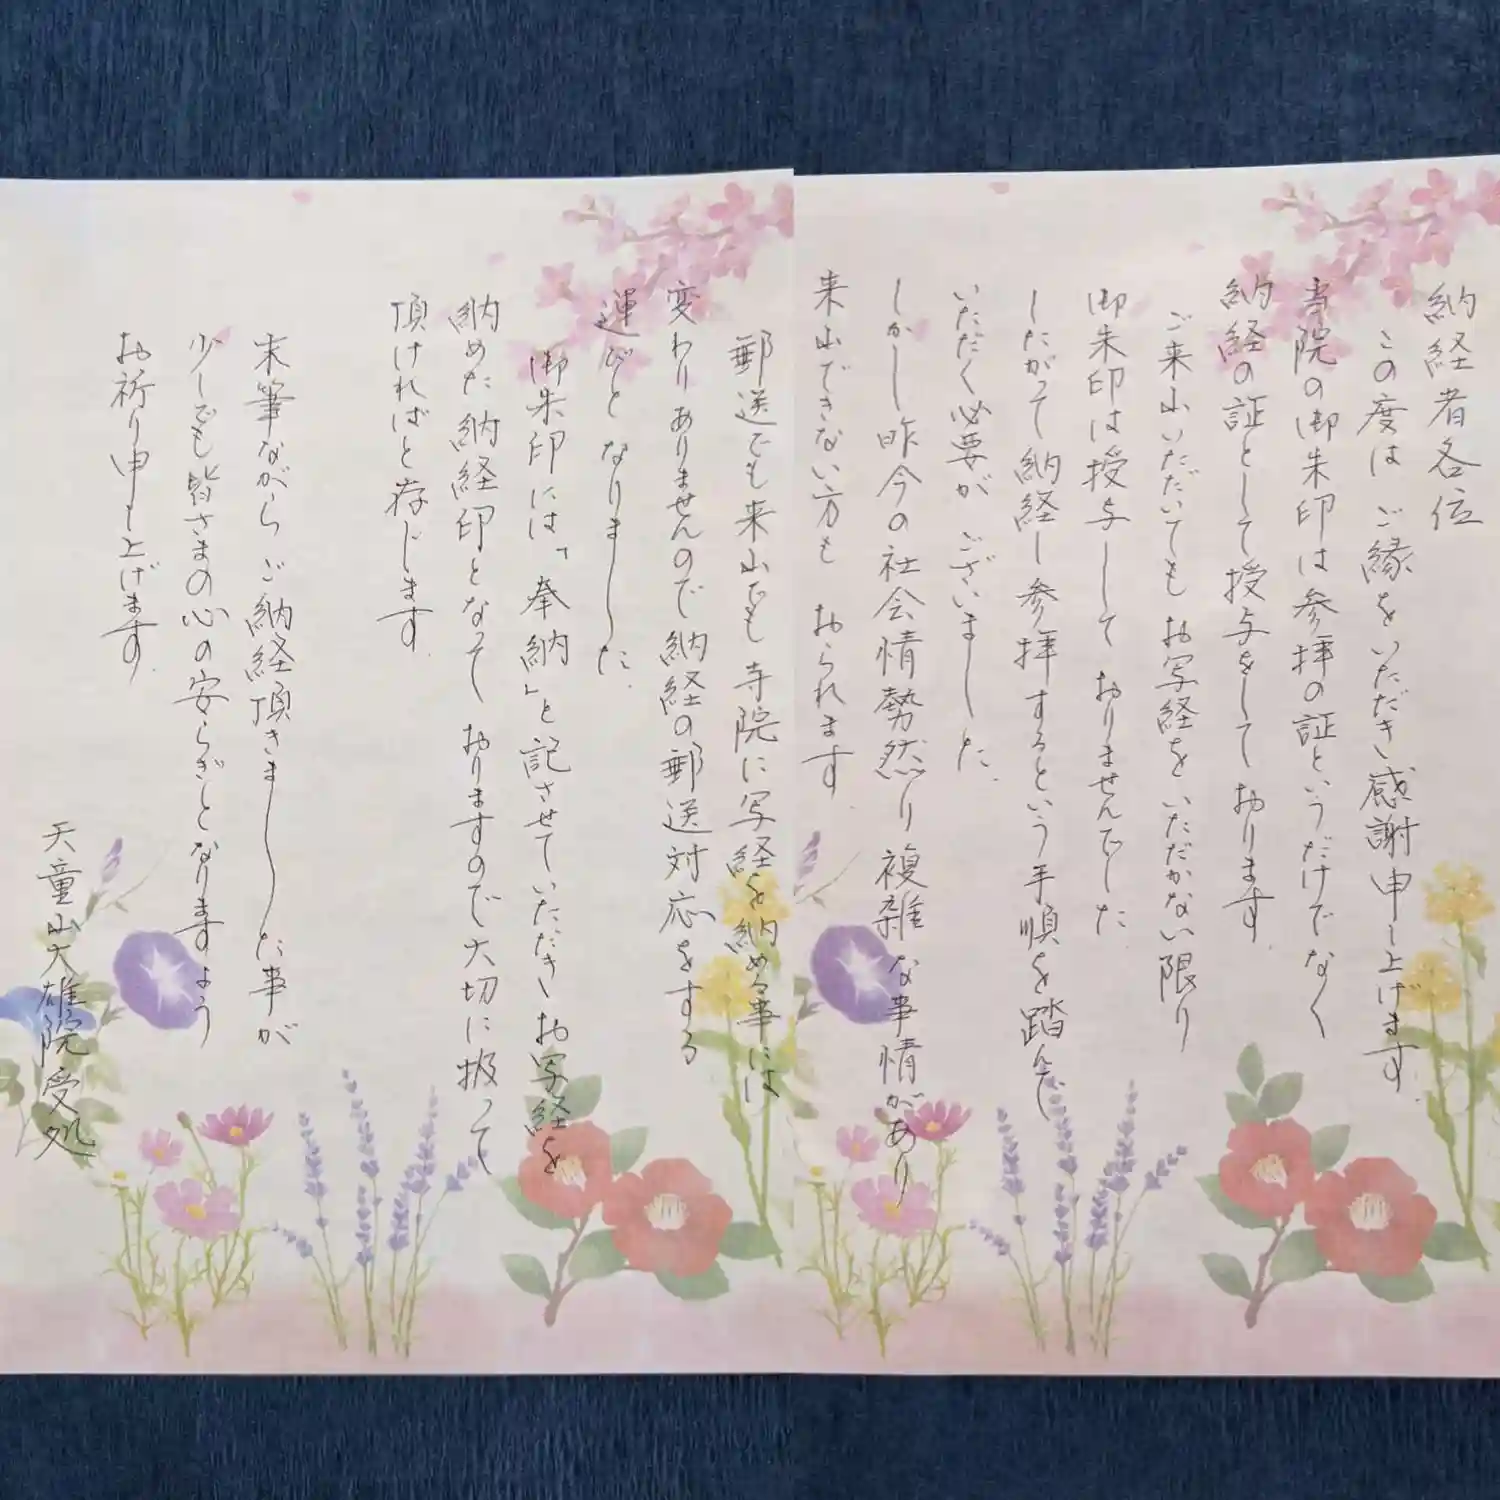 納経者各位
この度は ご縁をいただき感謝申し上げます
当院の御朱印は参拝の証というだけでなく
納経の証として授与をしております
ご来山いただいても お写経を いただかない限り
御朱印は授与しておりませんでした
したがって納経し参拝するという手順を踏んで
いただく必要がございました
しかし昨今の社会情勢然り複雑な事情があり
来山できない方も おられます
郵送でも来山でも寺院に写経を納める事には
変わりありませんので納経の郵送対応をする
運びとなりました
御朱印には「奉納」と記させていただき お写経を
納めた納経印となって おりますので大切に扱って
頂ければと存じます
末筆ながら ご納経頂きました事が
少しでも皆さまの心の安らぎとなりますよう
お祈り申し上げます
天童山大雄院受処